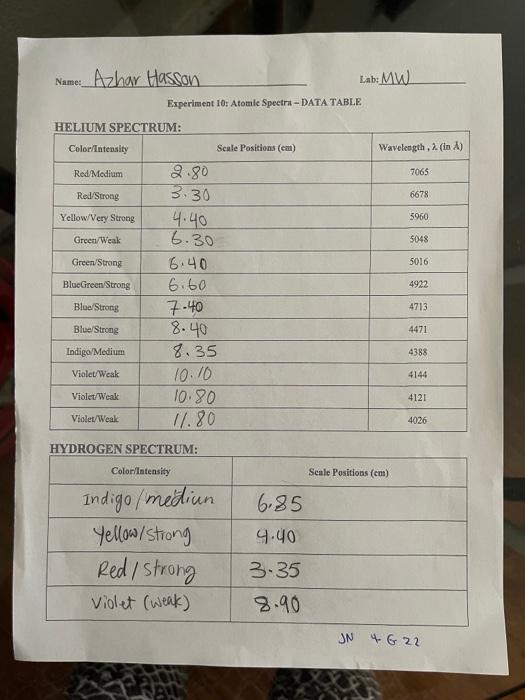 Name: Azhar Hasson Lab: MW
Experiment 10: Atomic Spectra – DATA TABLE
HELIUM SPECTRUM:
Color/Intensity Scale Positions (cm) Wavelength , λ (in Å)
Red/Medium 2.80 7065
Red/Strong 3.30 6678
Yellow/Very Strong 4.40 5960
Green/Weak 6.30 5048
Green/Strong 6.40 5016
BlueGreen/Strong 6.60 4922
Blue/Strong 7.40 4713
Blue/Strong 8.40 4471
Indigo/Medium 8.35 4388
Violet/Weak 10.10 4144
Violet/Weak 10.80 4121
Violet/Weak 11.80 4026
HYDROGEN SPECTRUM:
Color/Intensity Scale Positions (cm)
Indigo/mediun 6.85
Yellow/strong 4.40
Red / strong 3.35
Violet (weak) 8.90
JN 4 6 22